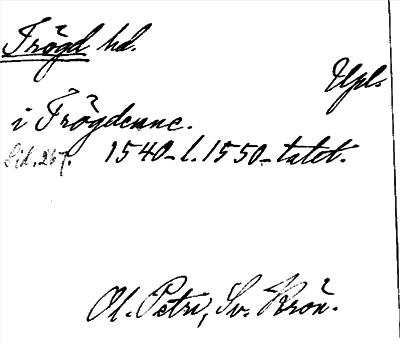 Trögd hd.
Upl.
i Trögdenne.
Sid. 267. 1540- l. 1550-talet.
Ol. Petri, Sv. Krön.